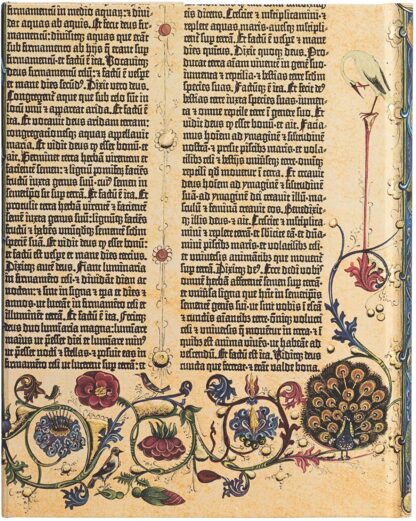 firmamentū in medio aquaꝝ: ⁊ divi-
dat aquas ab aquis. Et fecit deus fir-
mamentū: divisitqꝫ aquas que erāt
sub firmamento ab hijs q̄ erant suꝑ
firmamentū: et factū ē ita. Vocavitqꝫ
deus firmamentū celū: ⁊ factū ē vespe
et mane dies secūdꝰ. Dixit vero deus.
Congregent̄ aque que sub celo sūt in
locū unū ⁊ appareat arida. Et factū ē
ita. Et vocavit deus aridam terram:
congregacionesqꝫ aquaꝝ appellavit
maria. Et vidit deus ꝙ esset bonū· et
ait. Germinet terra herbā virentem et
facientē semen: et lignū pomifeꝝ faciēs
fructū iuxta genus suū· cuiꝰ semen in
semetipso sit suꝑ terrā. Et factū ē ita. Et
protulit terra herbā virentē ⁊ facientē
semē iuxta genus suū: lignūqꝫ faciēs
fructū ⁊ habēs unūqdqꝫ semētē scdm
speciē suā. Et vidit deus ꝙ esset bonū:
et factū est vespe et mane dies tercius.
Dixitqꝫ autē deus. Fiant luminaria
in firmamēto celi· ⁊ dividāt diem ac
noctem· ⁊ sint in signa ⁊ tꝑa et dies ⁊
annos· ut luceāt in firmamēto celi et
illuminēt terrā. Et factū ē ita. Fecitqꝫ
deus duo luminaria magna: lumīare
maius ut ꝑesset diei et lumīare minꝰ
ut ꝑesset nocti ⁊ stellas· ⁊ posuit eas in
firmamēto celi ut lucerent suꝑ terrā: et
tis dicens. Crescite ⁊ mĺtiplicamini·⁊
replete aquas maris· avesqꝫ mĺtipli-
cent̄ suꝑ terrā. Et factū ē vespe ⁊ mane
dies quintus. Dixit quoqꝫ deus. Pro-
ducat terra aīam viventē in gene suo·
iumenta ⁊ reptilia· ⁊ bestias terre scdm
species suas. Factūqꝫ ē ita. Et fecit deꝰ
bestias terre iuxta species suas· iumen-
ta ⁊ omne reptile terre ī genere suo. Et
vidit deus ꝙ esset bonū· et ait. Facia-
mus hoīem ad ymaginē ⁊ silitudinē
nostrā· ⁊ presit piscibꝫ maris· et vola-
tilibꝫ celi ⁊ bestijs universeqꝫ terre· omīqꝫ
reptili qd movetur ī terra. Et creavit
deus hoīem ad ymaginē ⁊ silitudinē
suā· ad ymaginē dei creavit illū· ma-
sculū ⁊ feminā creavit eos. Benedixit-
qꝫ illis deus· et ait. Crescite ⁊ mĺtiplica-
mini ⁊ replete terrā· et subicite eā· et dñā-
mini piscibꝫ maris· et volatilibꝫ celi·
et universis animātibꝫ que moventur
suꝑ terrā. Dixitqꝫ deꝰ. Ecce dedi vobis
omnē herbā afferentē semen suꝑ terrā·
et ūniūsa ligna que hñt in semetipsis
semētē genis sui· ut sint vobis ī escā
⁊ cunctis aīantibꝫ terre· omīqꝫ volucri
celi ⁊ universis q̄ moventur in terra· ⁊ ī
quibꝫ est anima vivēs· ut habeāt ad
vescendū. Et factū est ita. Viditqꝫ deus
cuncta que fecerat· ⁊ erāt valde bona.